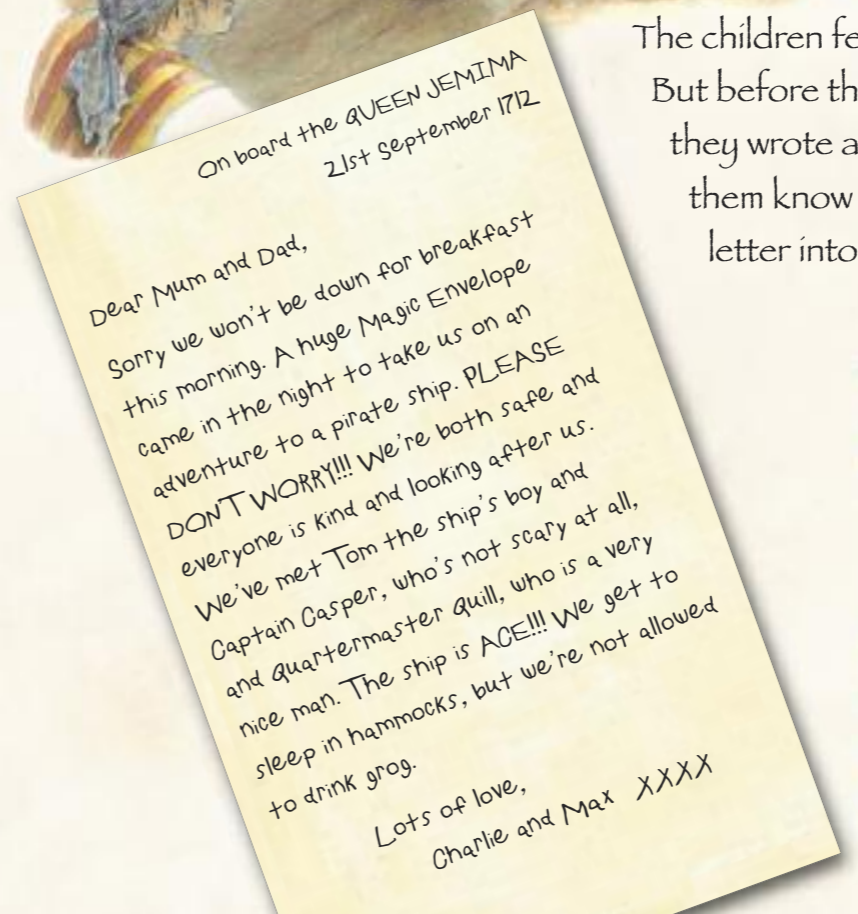 The children fe
But before th
they wrote a
them know
letter into
On board the QUEEN JEMIMA
21st September 1712
Dear Mum and Dad,
Sorry we won't be down for breakfast
this morning. A huge Magic Envelope
came in the night to take us on an
adventure to a pirate ship. PLEASE
DON'T WORRY!!! We're both safe and
everyone is kind and looking after us.
We've met Tom the ship's boy and
Captain Casper, who's not scary at all,
and Quartermaster Quill, who is a very
nice man. The ship is ACE!!! We get to
sleep in hammocks, but we're not allowed
to drink grog.
Lots of love,
Charlie and Max XXXX